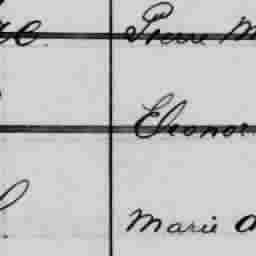 Pierre M
Eleonor
Marie A